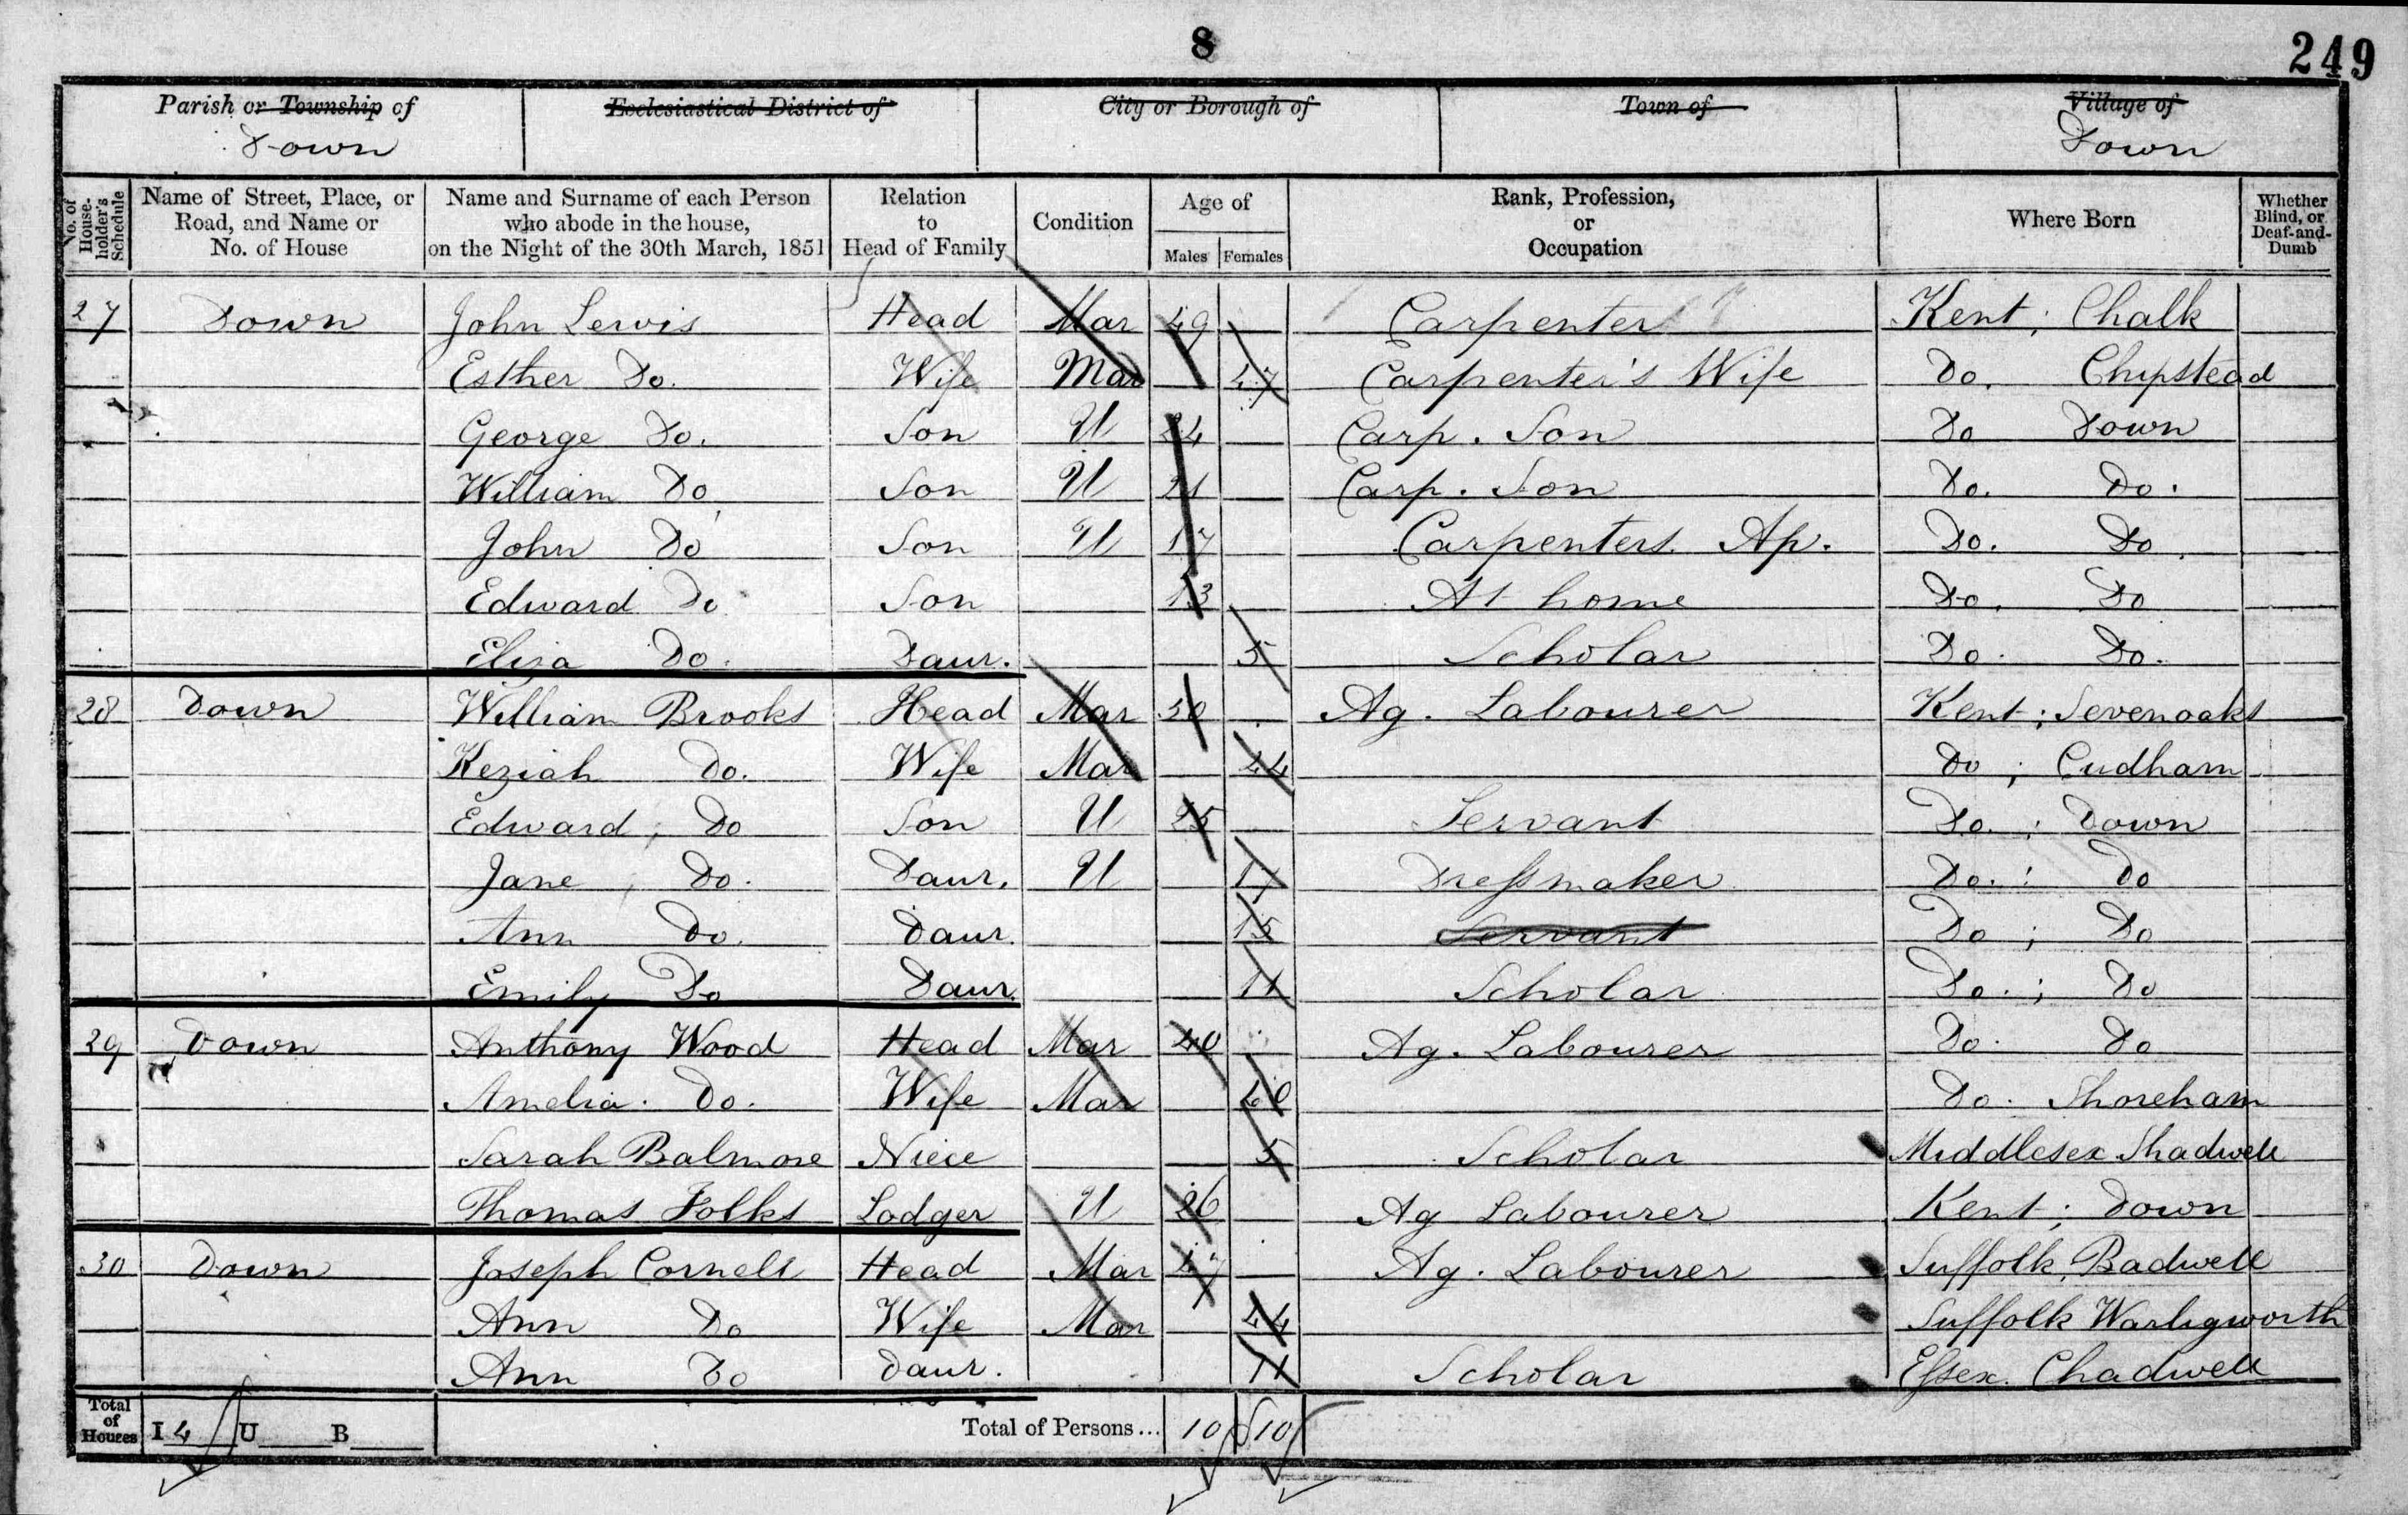 8
249
Parish or Township of
Down
Ecclesiastical District of
City or Borough of
Town of
Village of
Down
No. of House-holder's Schedule
Name of Street, Place, or Road, and Name or No. of House
Name and Surname of each Person who abode in the house, on the Night of the 30th March, 1851
Relation to Head of Family
Condition
Age of
Males
Females
Rank, Profession, or Occupation
Where Born
Whether Blind, or Deaf-and-Dumb
27 Down John Lewis Head Mar 49 Carpenter Kent; Chalk
Esther Do. Wife Mar 47 Carpenter's Wife Do. Chipstead
George Do. Son U 24 Carp. Son Do Down
William Do Son U 21 Carp. Son Do. Do.
John Do Son U 17 Carpenters Ap. Do. Do.
Edward Do Son 13 At home Do. Do
Eliza Do. Daur. 5 Scholar Do. Do.
28 Down William Brooks Head Mar 50 Ag. Labourer Kent; Sevenoaks
Keziah Do. Wife Mar 44 Do; Cudham
Edward, Do Son U 25 Servant Do.; Down
Jane, Do. Daur. U Dressmaker Do.: Do
Ann Do. Daur. 15 Servant Do; Do
Emily Do Daur. 11 Scholar Do.; Do
29 Down Anthony Wood Head Mar 40 Ag. Labourer Do. Do
Amelia. Do. Wife Mar 40 Do. Shoreham
Sarah Balmore Niece 5 Scholar Middlesex Shadwell
Thomas Folks Lodger U 26 Ag Labourer Kent; Down
30 Down Joseph Cornell Head Mar Ag. Labourer Suffolk, Badwell
Ann Do Wife Mar 44 Suffolk Warligworth
Ann Do Daur. 11 Scholar Essex. Chadwell
Total of Houses I 4 U B Total of Persons... 10 10